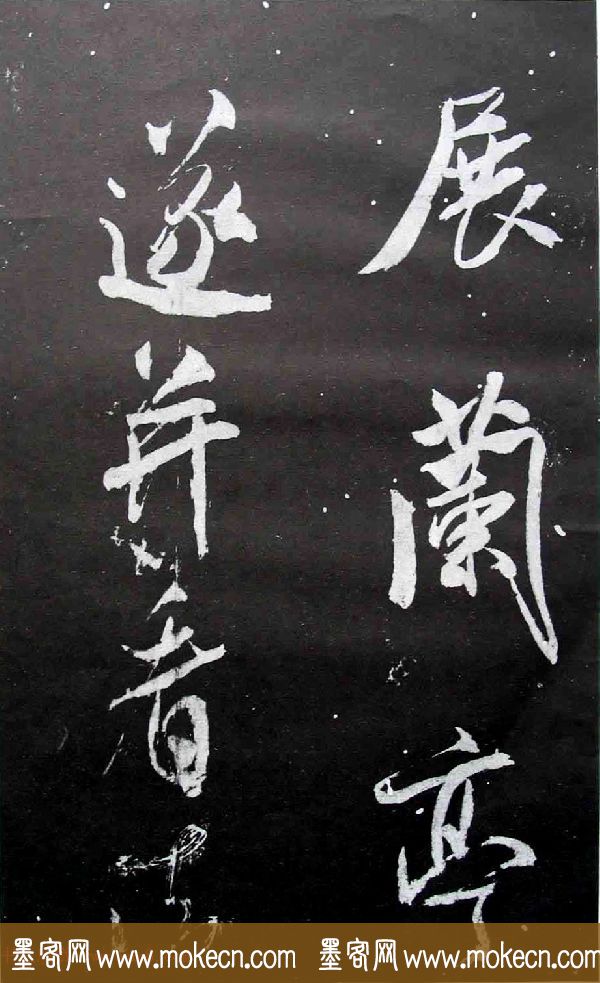 展蘭亭
遂并看
墨客网 www.mokecn.com 墨客网 www.mokecn.com